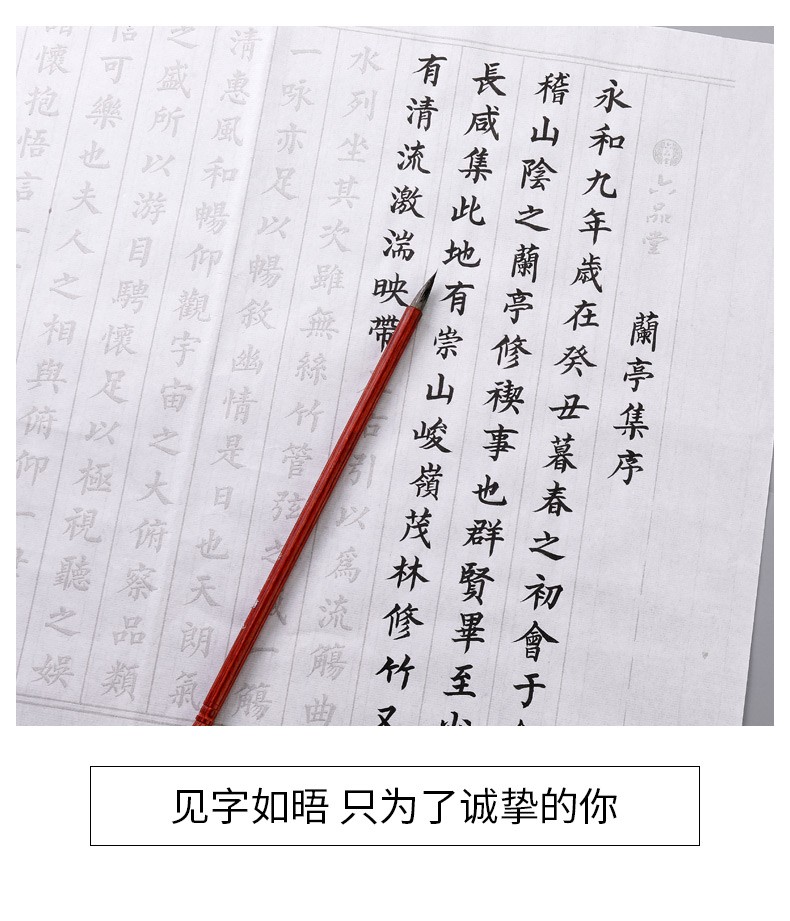 六品堂
蘭亭集序
永和九年歲在癸丑暮春之初會于
稽山陰之蘭亭修禊事也群賢畢至少
長咸集此地有崇山峻嶺茂林修竹又
有清流激湍映帶右引以爲流觴曲
水列坐其次雖無絲竹管弦之盛一觴
一詠亦足以暢敘幽情是日也天朗氣
清惠風和暢仰觀宇宙之大俯察品類
之盛所以游目騁懷足以極視聽之娛
信可樂也夫人之相與俯仰一
懷抱悟言一
见字如晤 只为了诚挚的你